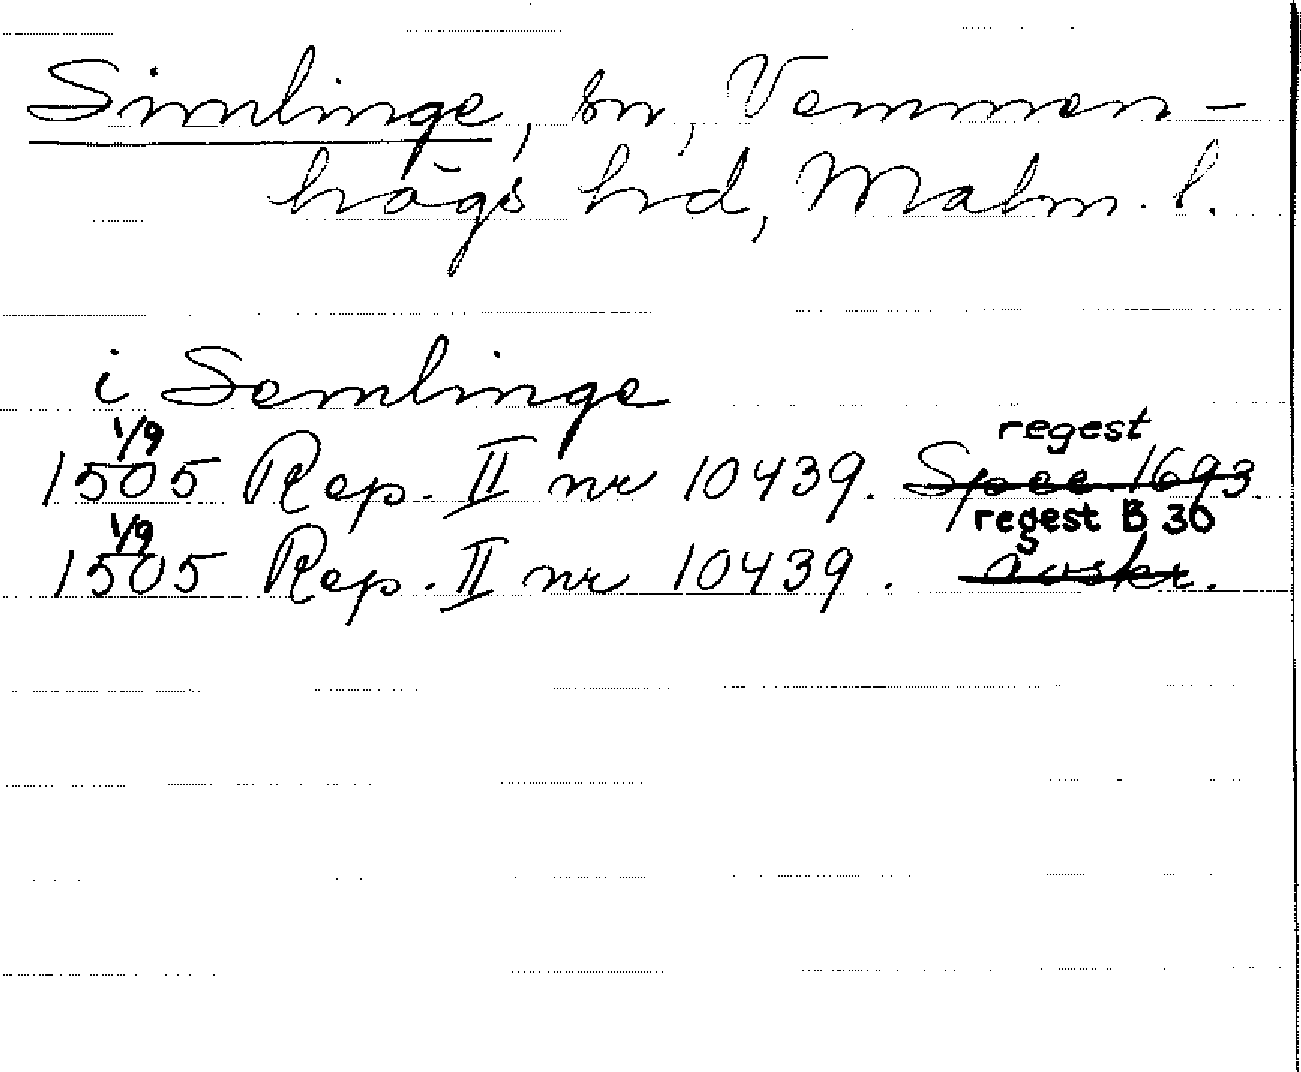 Simlinge, sn, Vemmen-
högs hd, Malm. l.
i Semlinge
1/9 regest
1505 Rep. II nr 10439. Spec 1693.
1/9 regest B 30
1505 Rep. II nr 10439. avskr.